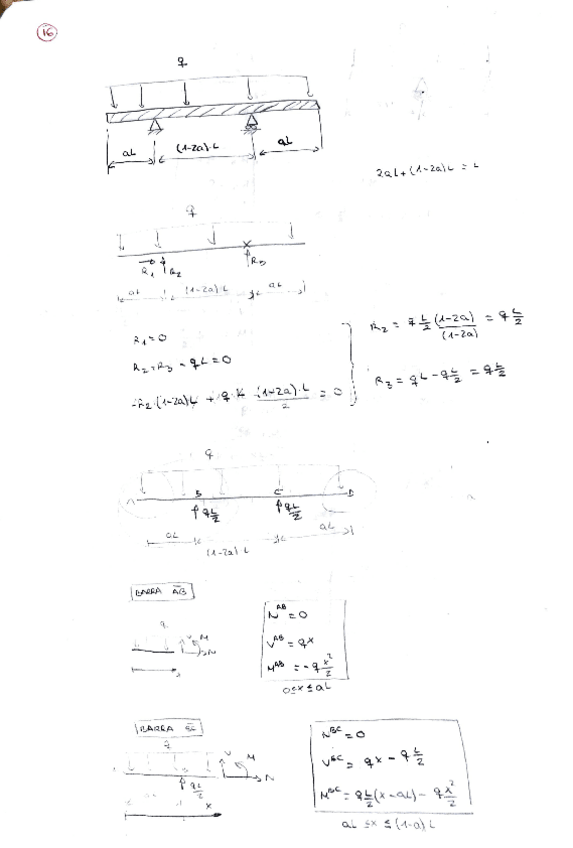 16
q
aL (1-2a)·L aL
2aL+(1-2a)L = L
q
R1 R2 R3
aL (1-2a)·L aL
R1=0
R2+R3-qL=0
-R2·(1-2a)L + q·L (1-2a)·L/2 = 0
R2 = q L/2 (1-2a)/(1-2a) = q L/2
R3 = qL - qL/2 = q L/2
q
A B C D
qL/2 qL/2
aL (1-2a) L aL
BARRA AB
q
V M N
N^AB = 0
V^AB = qx
M^AB = -q x²/2
0≤x≤aL
BARRA BC
q
V M N
qL/2
x
N^BC = 0
V^BC = qx - q L/2
M^BC = qL/2 (x-aL) - q x²/2
aL ≤x ≤ (1-a) L